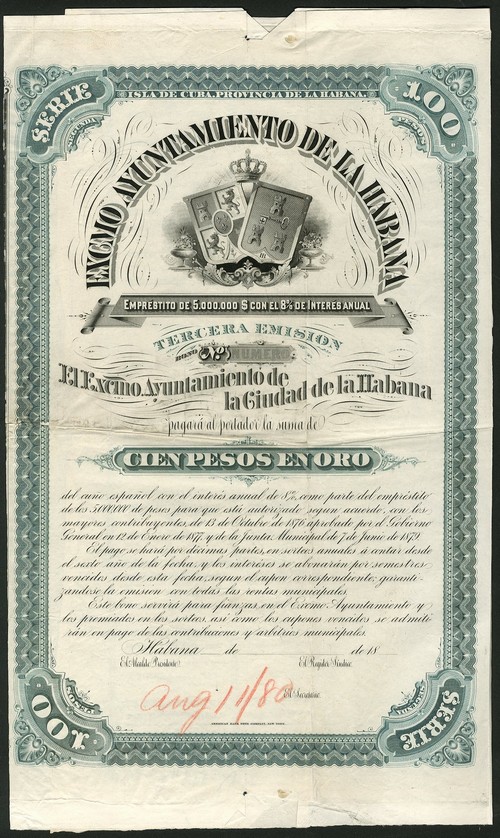 SERIE
ISLA DE CUBA, PROVINCIA DE LA HABANA.
100
PESOS
EXCMO AYUNTAMIENTO DE LA HABANA
EMPRÉSTITO DE 5.000.000 $ CON EL 8% DE INTERES ANUAL
TERCERA EMISION
BONO No. NUMERO
El Excmo. Ayuntamiento de
la Ciudad de la Habana
pagará al portador la suma de
CIEN PESOS EN ORO
del cuño español con el interés anual de 8%, como parte del empréstito
de los 5.000.000 de pesos para que está autorizado segun acuerdo, con los
mayores contribuyentes, de 13 de Octubre de 1876 aprobado por el Gobierno
General en 12 de Enero de 1877 y de la Junta Municipal de 7 de Junio de 1879.
El pago se hará por décimas partes, en sorteos anuales á contar desde
el sexto año de la fecha, y los intereses se abonarán por semestres
vencidos desde esta fecha, segun el cupon correspondiente, garanti-
zandose la emision con todas las rentas municipales.
Este bono servirá para fianzas, en el Excmo. Ayuntamiento y
los premiados en los sorteos, así como los cupones vencidos se admiti-
rán en pago de las contribuciones y arbitrios municipales.
Habana de de 18
El Alcalde Presidente El Regidor Síndico
El Secretario
Aug 11/80
AMERICAN BANK NOTE COMPANY, NEW YORK.
100
SERIE